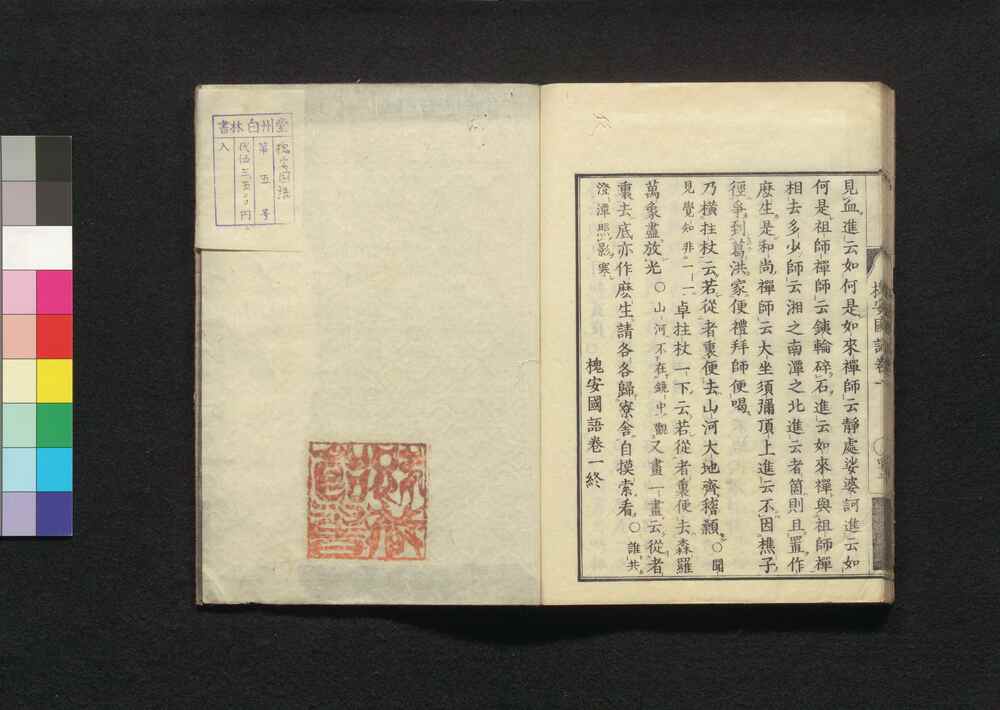 見血進云如何是如來禪師云靜處娑婆訶進云如
何是祖師禪師云鐵輪碎石進云如來禪與祖師禪
相去多少師云湘之南潭之北進云者箇則且置作
麽生是和尚禪師云大坐須彌頂上進云不因樵子
徑爭到葛洪家便禮拜師便喝
乃橫拄杖云若從者裏便去山河大地齊稽顙○聞
見覺知非一一卓拄杖一下云若從者裏便去森羅
萬象盡放光○山河不在鏡中觀又畫一畫云從者
裏去底亦作麽生請各各歸寮舍自摸索看○誰共
澄潭照影寒
槐安國語卷一終
槐安國語卷一
書林白州堂
槐安国語
第五号
入